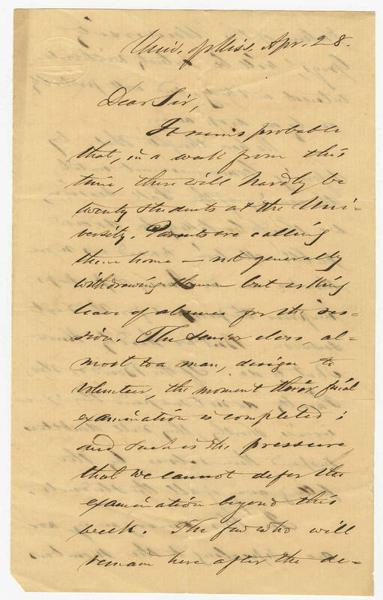 Univ. of Miss. Apr. 28.
Dear Sir,
It seems probable
that, in a week from this
time, there will hardly be
twenty students at the Uni-
versity. Parents are calling
them home — not generally
withdrawing them — but asking
leave of absence for the ses-
sion. The senior class, al-
most to a man, design to
volunteer, the moment their final
examination is completed;
and such is the pressure
that we cannot defer the
examination beyond this
week. The few who will
remain here after the de-